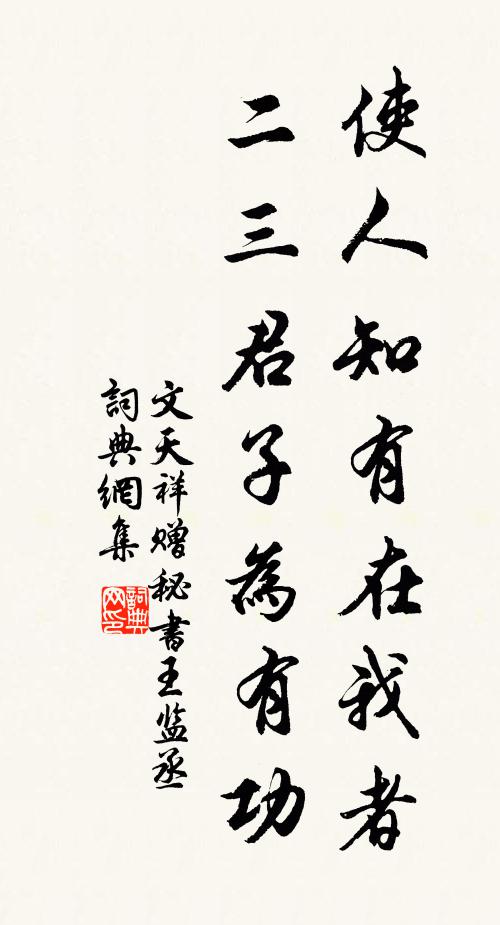 使人知有在我者
二三君子為有功
文天祥赠秘書王监丞
詞典網集
詞典网印